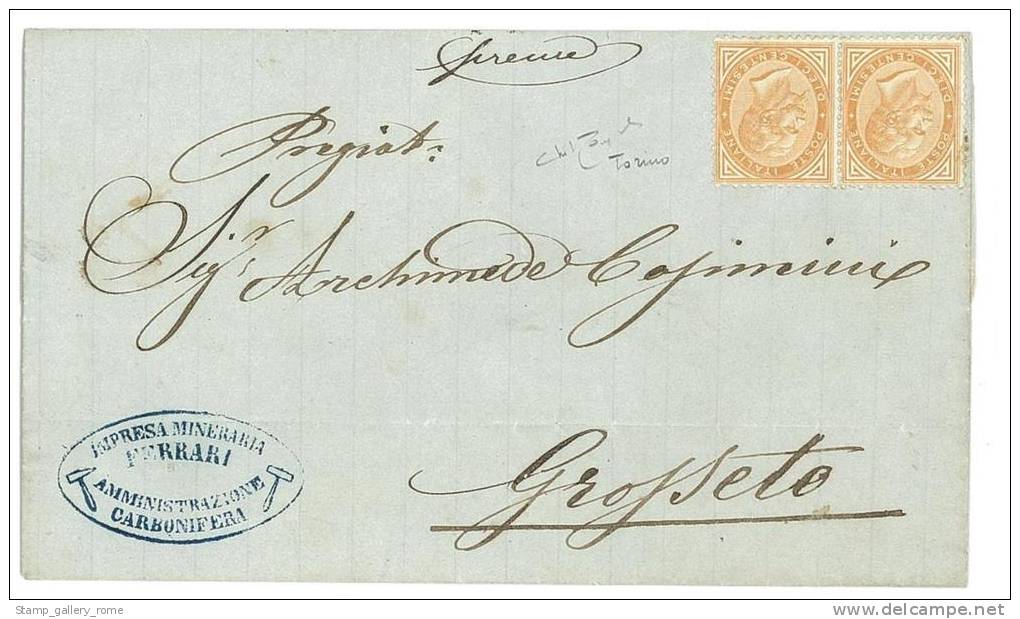 Pregiat.
Torino
Sigr Archimede Cosimini
Grosseto
IMPRESA MINERARIA
FERRARI
AMMINISTRAZIONE
CARBONIFERA
POSTE ITALIANE
DIECI CENTESIMI
POSTE ITALIANE
DIECI CENTESIMI
Stamp_gallery_rome
www.delcampe.net